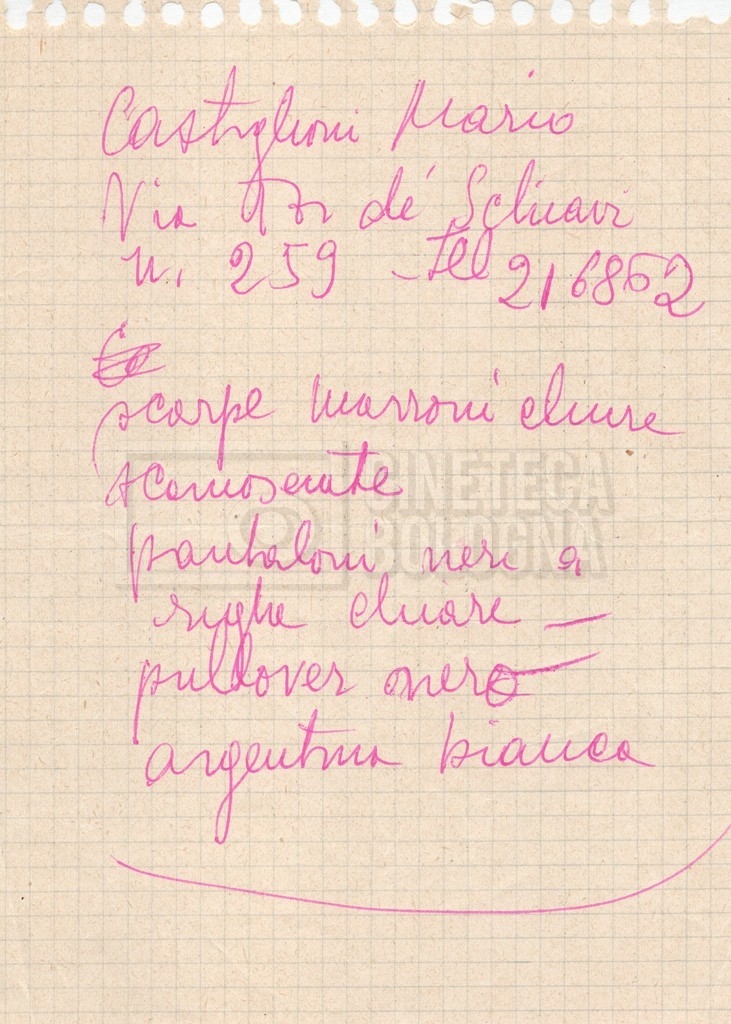 Castiglioni Mario
Via Tor dé Schiavi
n. 259 - Tel 216862
scarpe marroni chiare
scamosciate
CINETECA
BOLOGNA
pantaloni neri a
righe chiare —
pullover nero —
argentina bianca